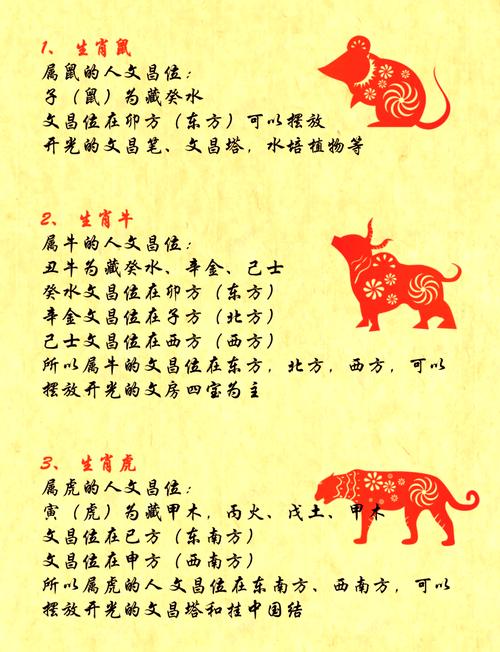 1、 生肖鼠
属鼠的人文昌位：
子（鼠）为藏癸水
文昌位在卯方（东方）可以摆放
开光的文昌笔、文昌塔，水培植物等
2、 生肖牛
属牛的人文昌位：
丑牛为藏癸水、辛金、己士
癸水文昌位在卯方（东方）
辛金文昌位在子方（北方）
己士文昌位在西方（西方）
所以属牛的文昌位在东方，北方，西方，可以
摆放开光的文房四宝为主
3、 生肖虎
属虎的人文昌位：
寅（虎）为藏甲木，丙火、戊土、甲木
文昌位在巳方（东南方）
文昌位在申方（西南方）
所以属虎的人文昌位在东南方、西南方，可以
摆放开光的文昌塔和挂中国结